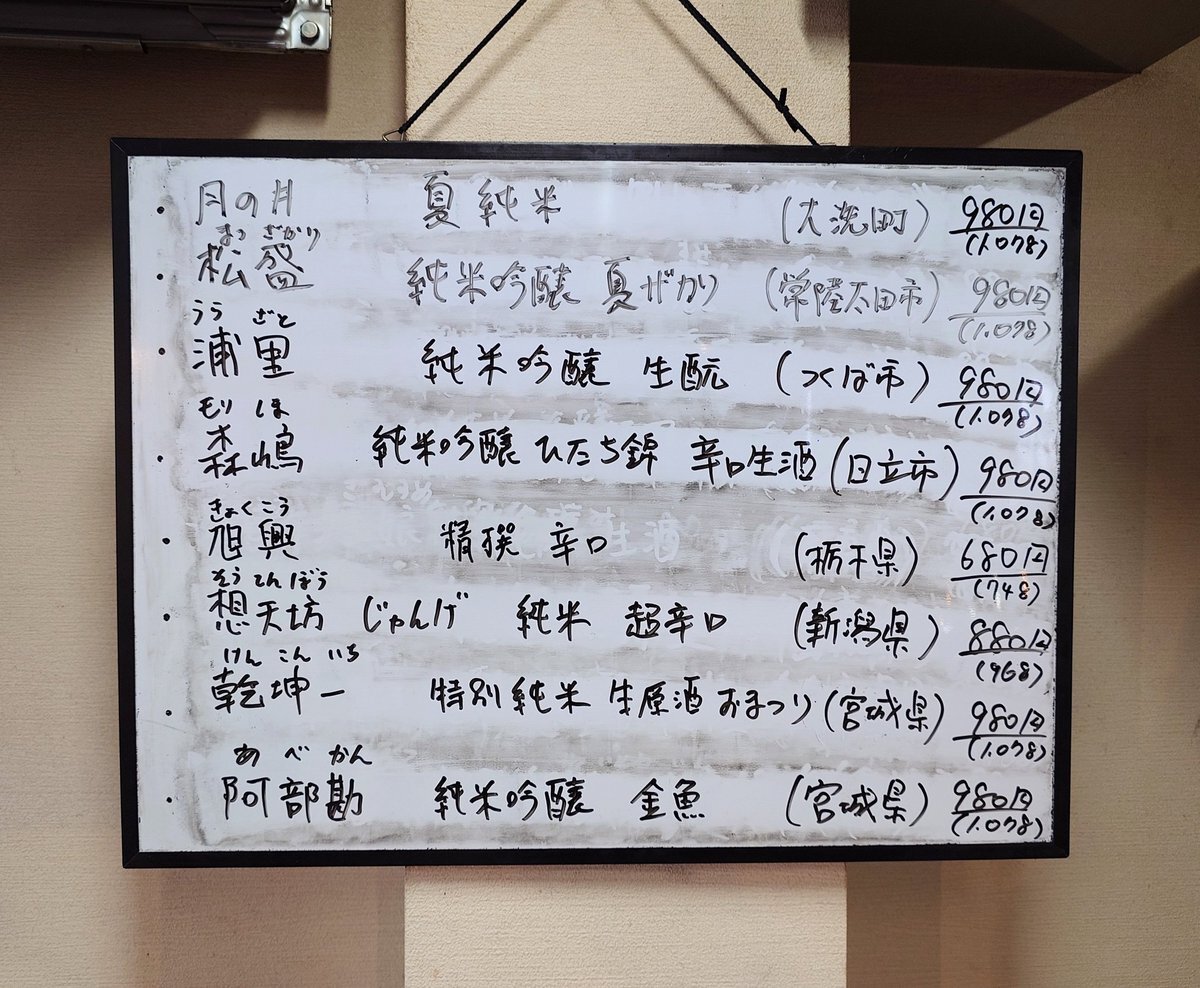 月の井 夏純米 (大洗町) 980円 (1.078)
まつ ざかり
松盛 純米吟醸 夏ざかり (常陸太田市) 980円 (1.078)
うら ざと
浦里 純米吟醸 生酛 (つくば市) 980円 (1.078)
もり しま
森嶋 純米吟醸 ひたち錦 辛口生酒 (日立市) 980円 (1.078)
きょく こう
旭興 精撰 辛口 (栃木県) 680円 (748)
そう てん ぼう
想天坊 じゃんげ 純米 超辛口 (新潟県) 880円 (968)
けん こん いち
乾坤一 特別純米 生原酒 おまつり (宮城県) 980円 (1.078)
あ べ かん
阿部勘 純米吟醸 金魚 (宮城県) 980円 (1.078)